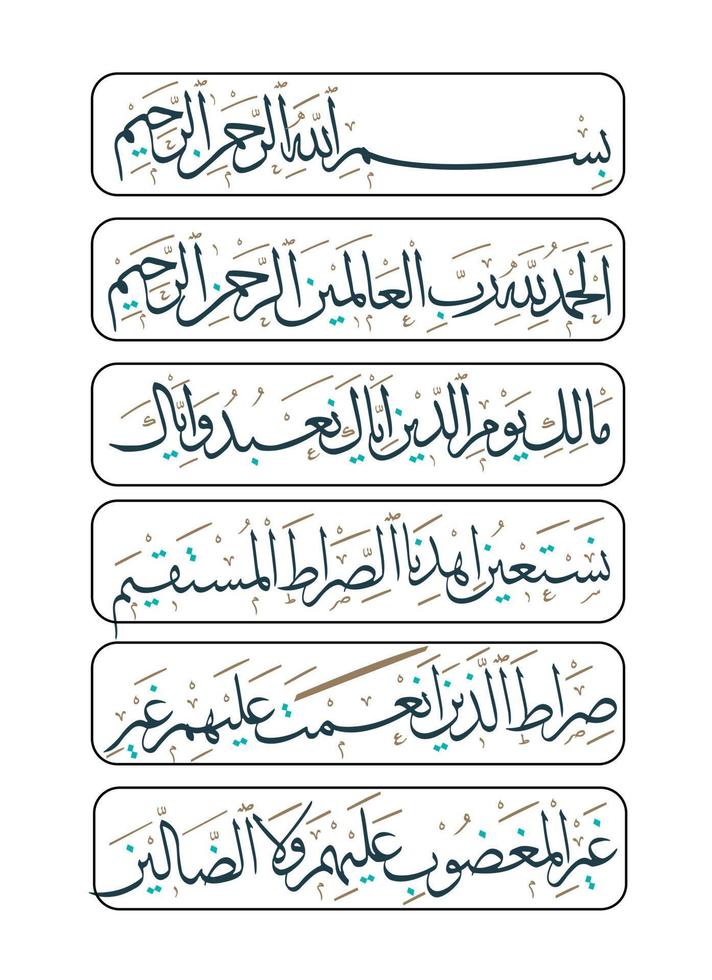 بِسْمِ اللَّهِ الرَّحْمَنِ الرَّحِيمِ
اَلْحَمْدُ لِلَّهِ رَبِّ الْعَالَمِينَ الرَّحْمَنِ الرَّحِيمِ
مَالِكِ يَوْمِ الدِّينِ إِيَّاكَ نَعْبُدُ وَإِيَّاكَ
نَسْتَعِينُ اهْدِنَا الصِّرَاطَ الْمُسْتَقِيمَ
صِرَاطَ الَّذِينَ أَنْعَمْتَ عَلَيْهِمْ غَيْرِ
غَيْرِ الْمَغْضُوبِ عَلَيْهِمْ وَلَا الضَّالِّينَ